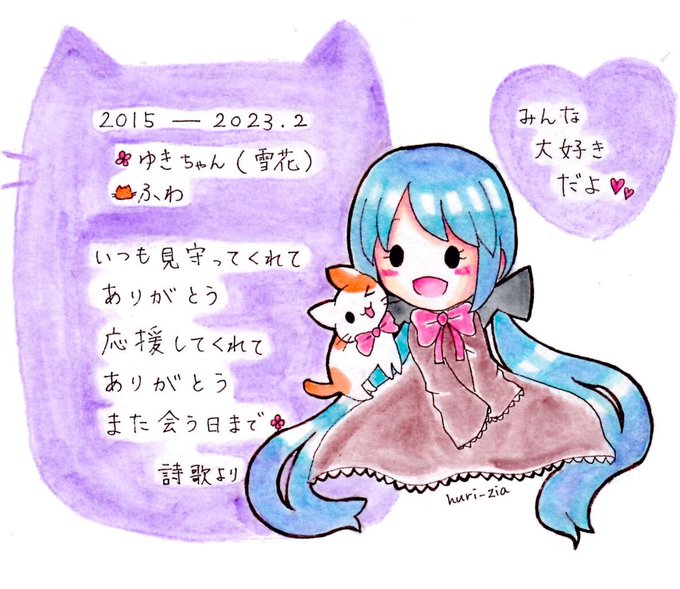 2015 ― 2023.2
ゆきちゃん(雪花)
ふわ
いつも見守ってくれて
ありがとう
応援してくれて
ありがとう
また会う日まで
詩歌より
みんな
大好き
だよ
huri-zia